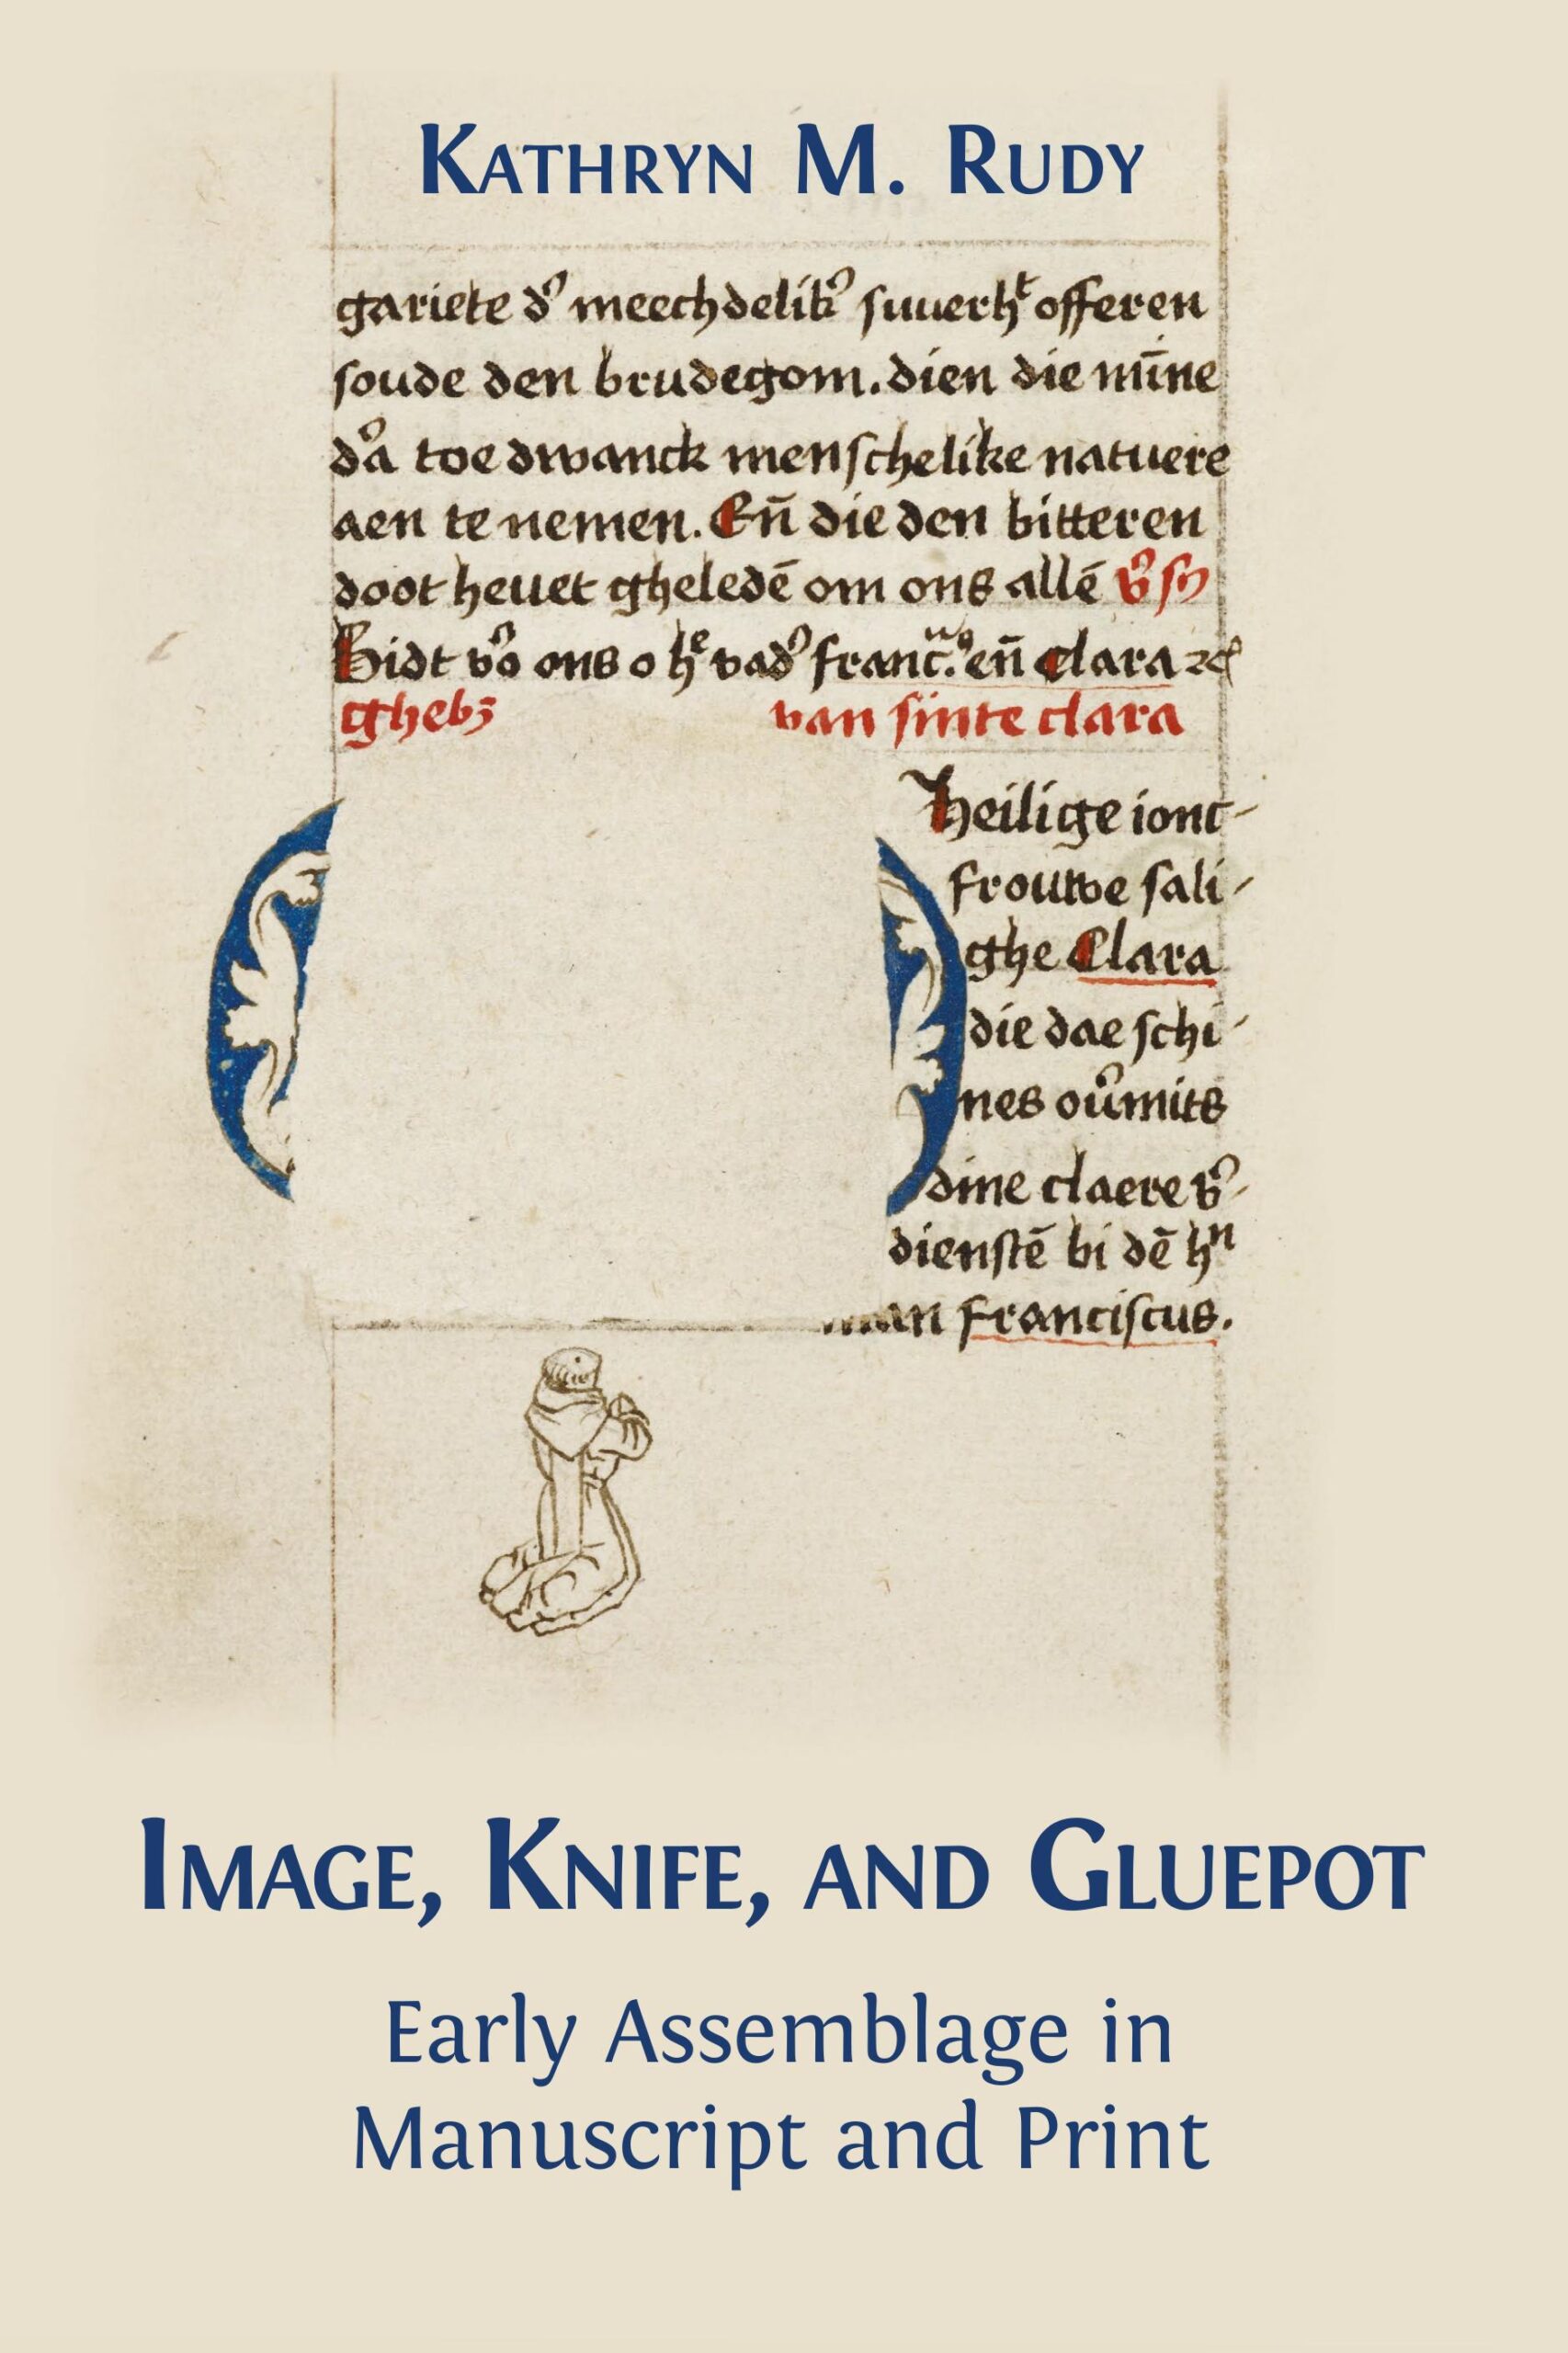 KATHRYN M. RUDY
gariete d' meechdelik' suuerht offeren
soude den brudegom. dien die mīne
d'a toe dwanck menschelike natuere
aen te nemen. Eñ die den bitteren
doot heuet gheledē om ons allē
Bidt vo' ons o he vad' franc. eñ Clara
gheb₃ van sinte clara
heilige ionc-
frouwe sali-
ghe Clara
die dae schi-
nes ou'mits
dine claere v'-
dienstē bi dē hn
an franciscus.
IMAGE, KNIFE, AND GLUEPOT
Early Assemblage in
Manuscript and Print